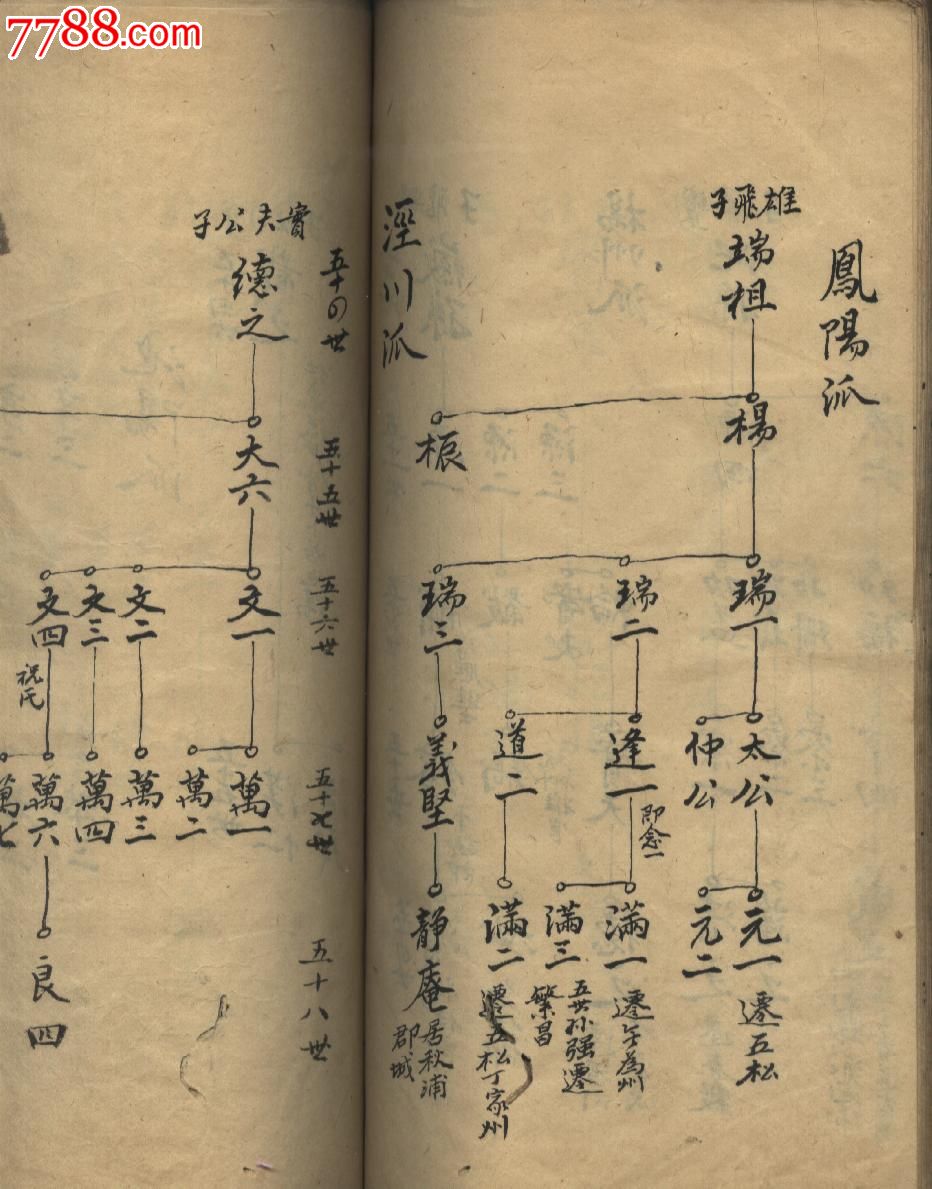 7788.com
鳳陽派
雄飛子
瑞柤
楊
桭
瑞一
瑞二
瑞三
太公
仲公
逢一
即念一
道二
義堅
元一
遷五松
元二
滿一
滿三
五世孫強遷
繁昌
滿二
遷五松丁家州
靜庵
居秋浦
郡城
涇川派
五十四世
五十五世
五十六世
五十七世
五十八世
實夫公子
德之
大六
文一
文二
文三
文四
祝氏
萬一
萬二
萬三
萬四
萬六
萬七
良四